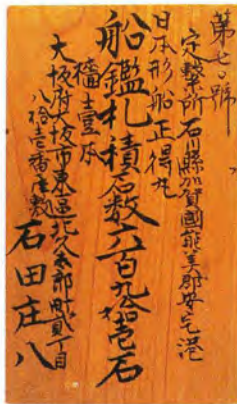 第七〇號
定繫所 石川縣加賀國能美郡安宅港
日本形船正得丸
船鑑札積石数六百九拾壱石
檣壹本
大坂府大坂市東區北久太郎町貳丁目
八拾壱番屋敷
石田庄八